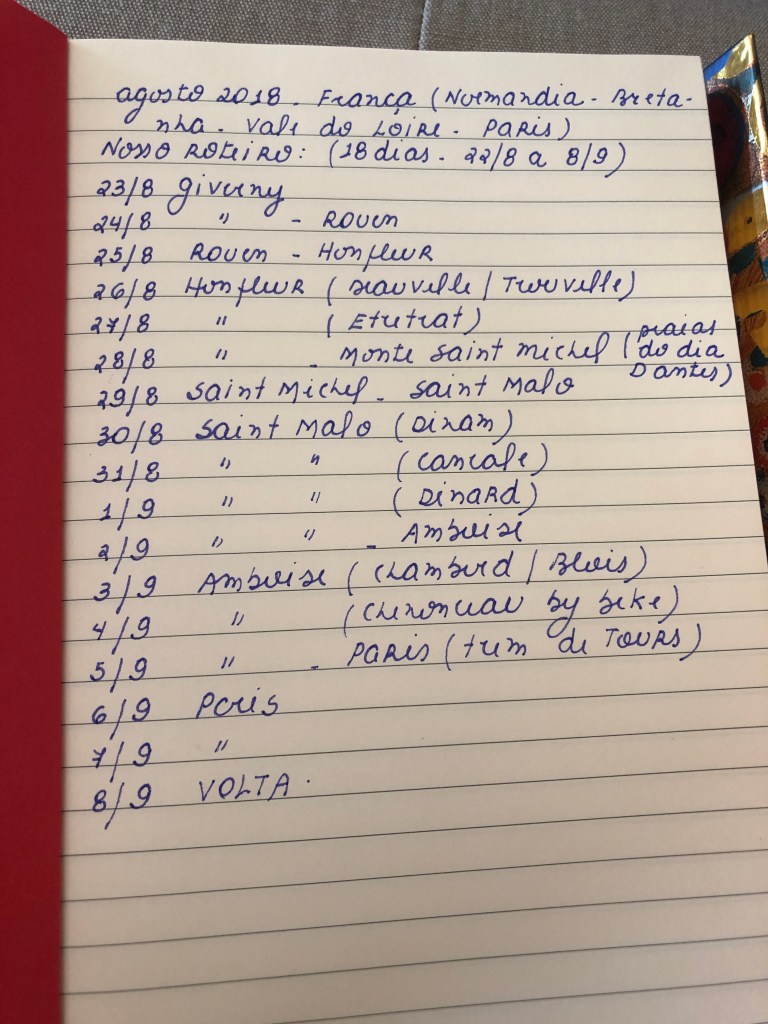 agosto 2018. França (Normandia - Breta-
nha - Vale do Loire - Paris)
Nosso roteiro: (18 dias - 22/8 a 8/9)
23/8 Giverny
24/8 " - Rouen
25/8 Rouen - Honfleur
26/8 Honfleur (Deauville / Trouville)
27/8 " (Etretat)
28/8 " - Monte Saint Michel (praias do dia Dantes)
29/8 Saint Michel - Saint Malo
30/8 Saint Malo (Dinam)
31/8 " " (Cancale)
1/9 " " (Dinard)
2/9 " " - Amboise
3/9 Amboise (Chambord / Blois)
4/9 " (Chenonceau by bike)
5/9 " - Paris (trem de Tours)
6/9 Paris
7/9 "
8/9 VOLTA.